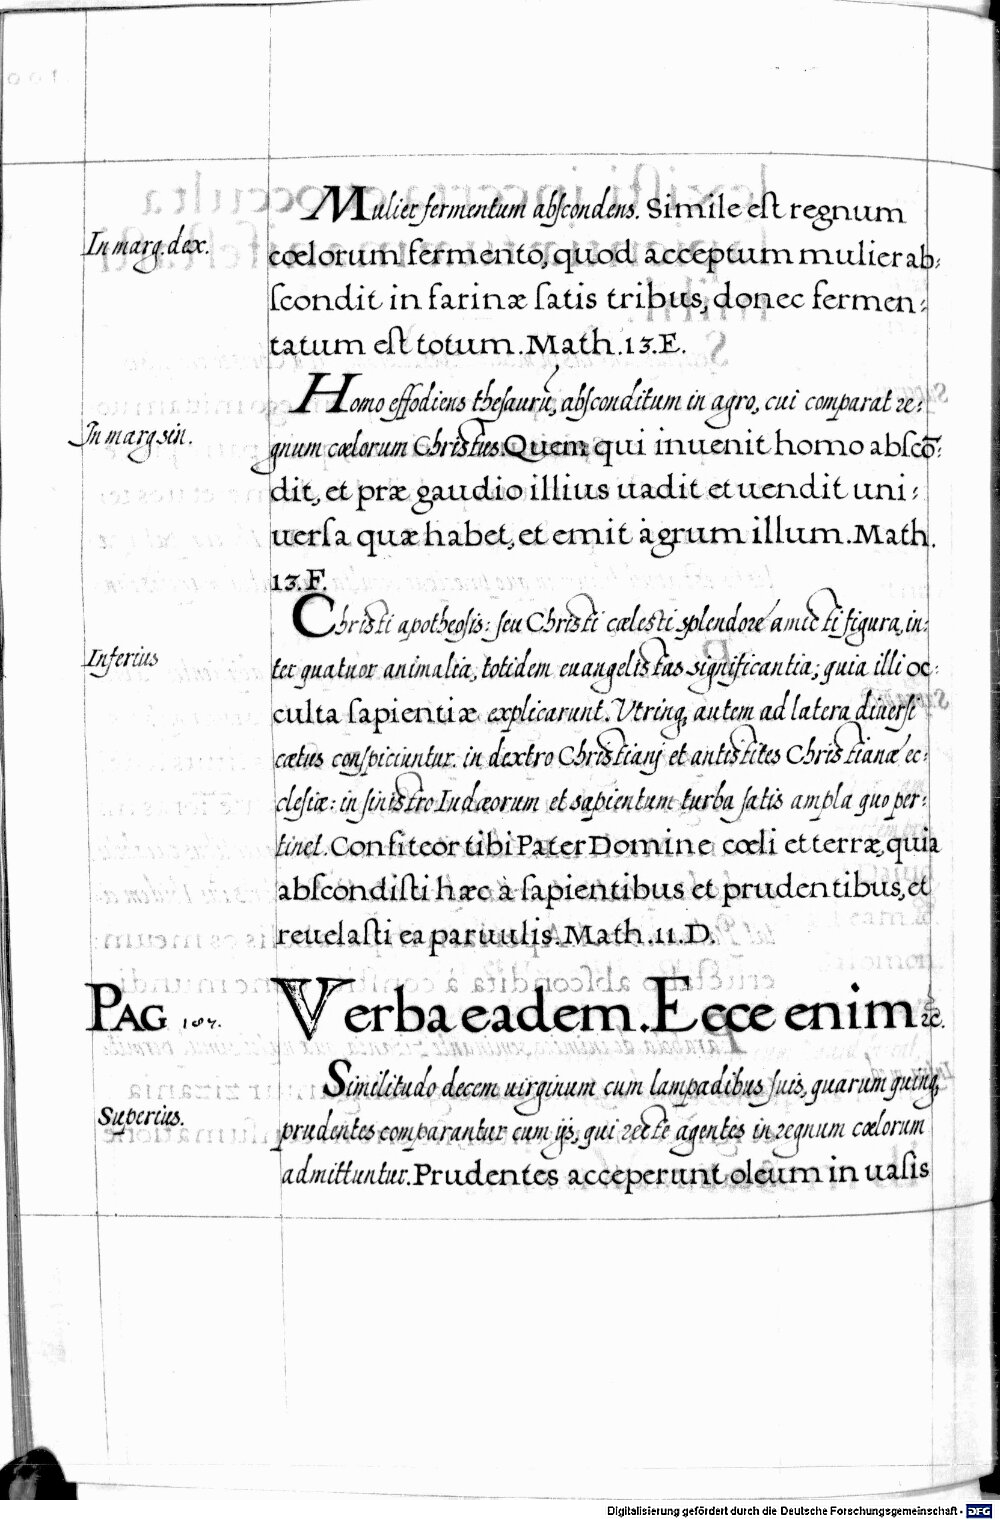 Mulier fermentum abſcondens. Simile eſt regnum
In marg. dex.
cœlorum fermento, quod acceptum mulier ab:
ſcondit in farinæ ſatis tribus, donec fermen:
tatum eſt totum. Math. 13. E.
Homo effodiens theſaurū, abſconditum in agro, cui comparat re:
In marg sin.
gnum cœlorum Christus Quem qui inuenit homo abſcō:
dit, et præ gaudio illius uadit et uendit uni:
uerſa quæ habet, et emit agrum illum. Math.
13. F.
Christi apotheoſis: ſeu Christi cælesti splendore amicti figura, in:
Inferius
ter quatuor animalia, totidem euangelistas significantia; quia illi oc:
culta ſapientiæ explicarunt. Utrinq, autem ad latera diuerſi
cætus conſpiciuntur. in dextro Christianj et antistites Christianæ ec:
cleſiæ: in ſinistro Iudæorum et sapientum turba ſatis ampla quo per:
tinet. Confiteor tibi Pater Domine cœli et terræ, quia
abſcondiſti hæc à ſapientibus et prudentibus, et
reuelaſti ea paruulis. Math. 11. D.
PAG 187.
Verba eadem. Ecce enim &c.
Similitudo decem uirginum cum lampadibus ſuis, quarum quinq,
Superius.
prudentes comparantur cum ijs, qui recte agentes in regnum cœlorum
admittuntur. Prudentes acceperunt oleum in uaſis
Digitalisierung gefördert durch die Deutsche Forschungsgemeinschaft - DFG